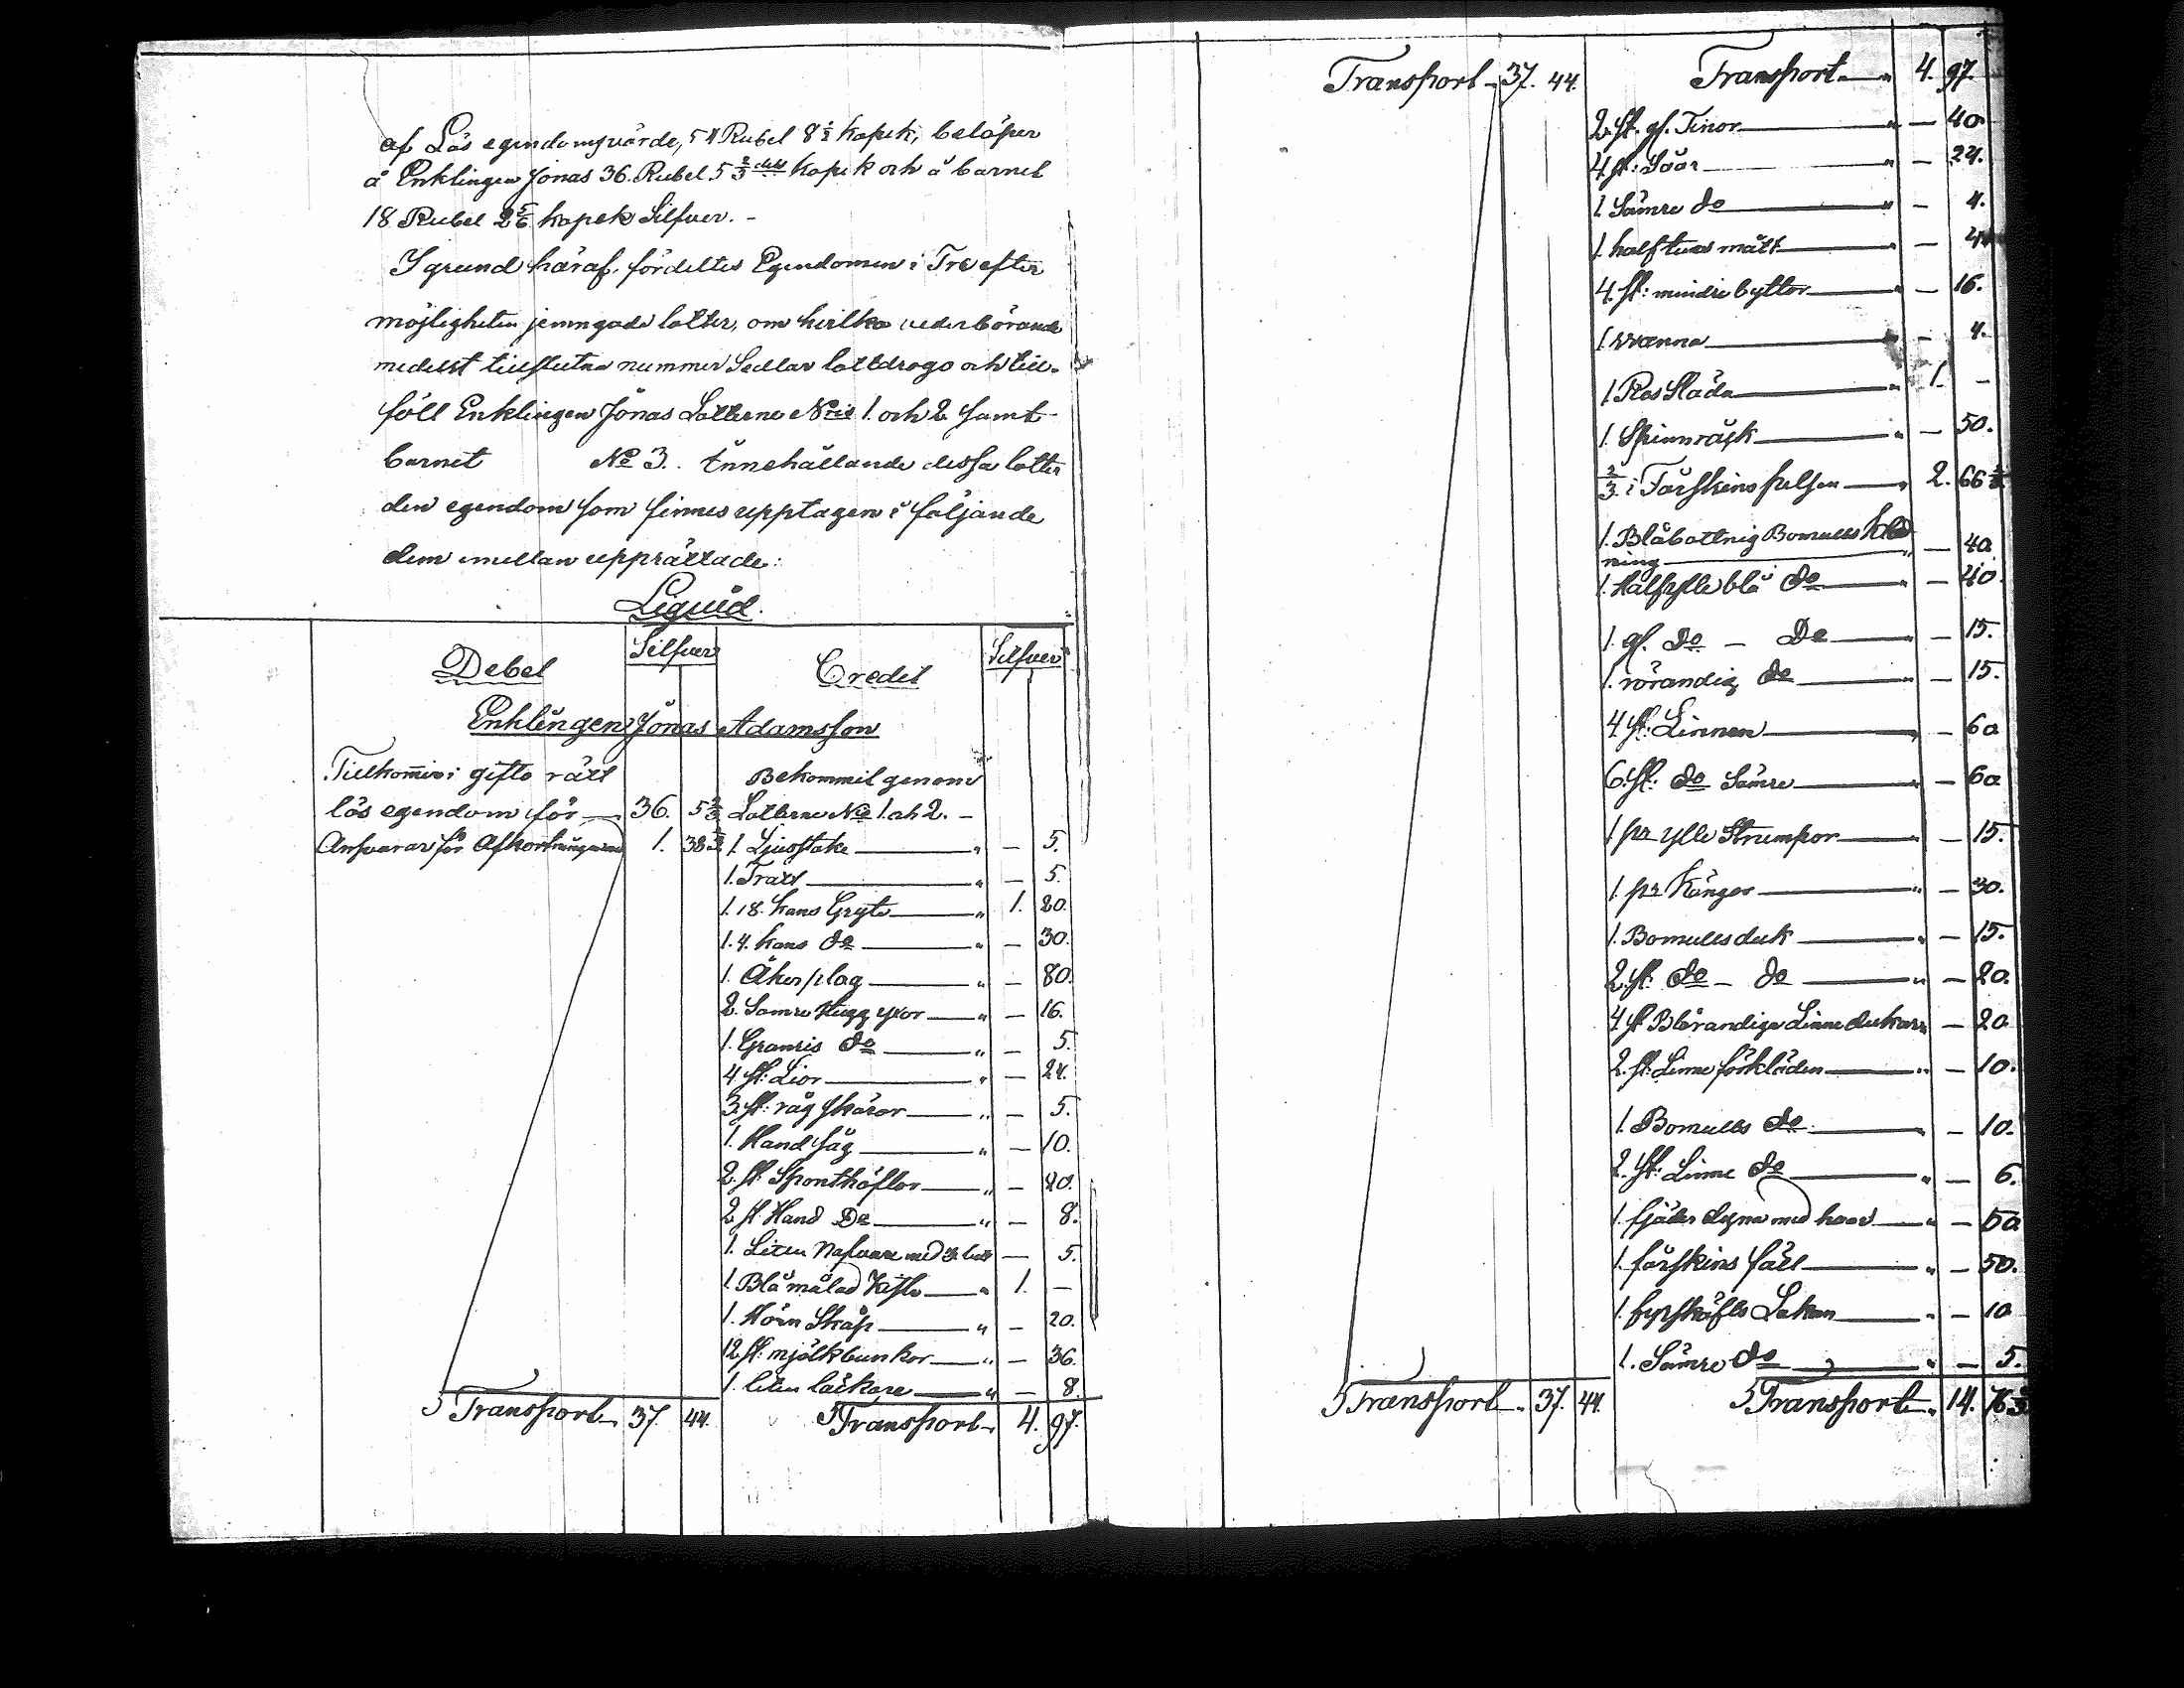 af Lös egendomsvärde, 54 Rubel 8½ kopek, belöper
å Enklingen Jonas 36. Rubel 5 2/3 del kopek och å barnet
18 Rubel 2 5/6 kopek Silfver. -
I grund häraf, fördeltes Egendomen i Tre efter
möjligheten jemngade lotter, om hvilka vederbörande
medelst tillslutna nummer Sedlar lottdrogo och till-
föll Enklingen Jonas Lotterne N:ris 1. och 2 samt
barnet No 3. Innehållande dessa lotter
den egendom som finnes upptagen i följande
dem emellan upprättade:
Liquid.
Debet Silfver Credit Silfver
Enklingen Jonas Adamsson
Tillkommer i gifto rätt
lös egendom för — 36. 5 2/3
Ansvarar för Afkortningarne 1. 38 1/3
Transport 37. 44.
Bekommit genom
Lotterne No 1 och 2. -
1 Ljusstake — " — 5.
1. Tratt — " — 5.
1. 18. kans Gryta — " 1. 20.
1. 4. kans do — " — 30.
1. Åker plog — " — 80.
2. Sämre Hugg yxor — " — 16.
1. Granris do — " — 5.
4 st: Lior — " — 24.
3 st: råg skäror — " — 5.
1. Hand såg — " — 10.
2. st: Sponthöflor — " — 20.
2 st. Hand Do — " — 8.
1. Liten Nafvare med — 5.
1 Blå målad Kista — " 1. —
1. Hörn Skåp — " — 20.
12 st: mjölkbunkor — " — 36.
1. liten — " — 8.
Transport 4. 97.
Transport 37. 44.
Transport 37. 44.
Transport — " 4. 97.
2 st. gl. Tinor — " — 40
4 st: Såar — " — 24.
1. Sämre do — " — 4.
1. half tuns mått — " — 4
4. st: mindre byttor — " — 16.
1 — " — 4.
1 Res Släda — " 1. —
1. Spinnräck — " — 50.
2/3 i Fårskins pelsen — " 2. 66 2/3
1. Blåbottnig Bomulls Kläd
ning — " — 40
1. Halfylle blå do — " — 40.
1. gl. do — Do — " — 15.
1. rörandig do — " — 15.
4 st: Linnen — " — 60
6. st: do Sämre — " — 60
1 pr ylle Strumpor — " — 15.
1. pr Kängor — " — 30.
1. Bomullsduk — " — 15.
2. st: do — do — " — 20.
4 st Blårandiga Linne dukar " — 20
2. st: Linne förkläden — " — 10.
1. Bomulls do — " — 10.
2. st: Linne do — " — 6.
1. fjäder dyna med — " — 50
1. fårskins fäll — " — 50.
1. fyrskäfts Lakan — " — 10
1. Sämre do — " — 5.
Transport " 14. 76 2/3